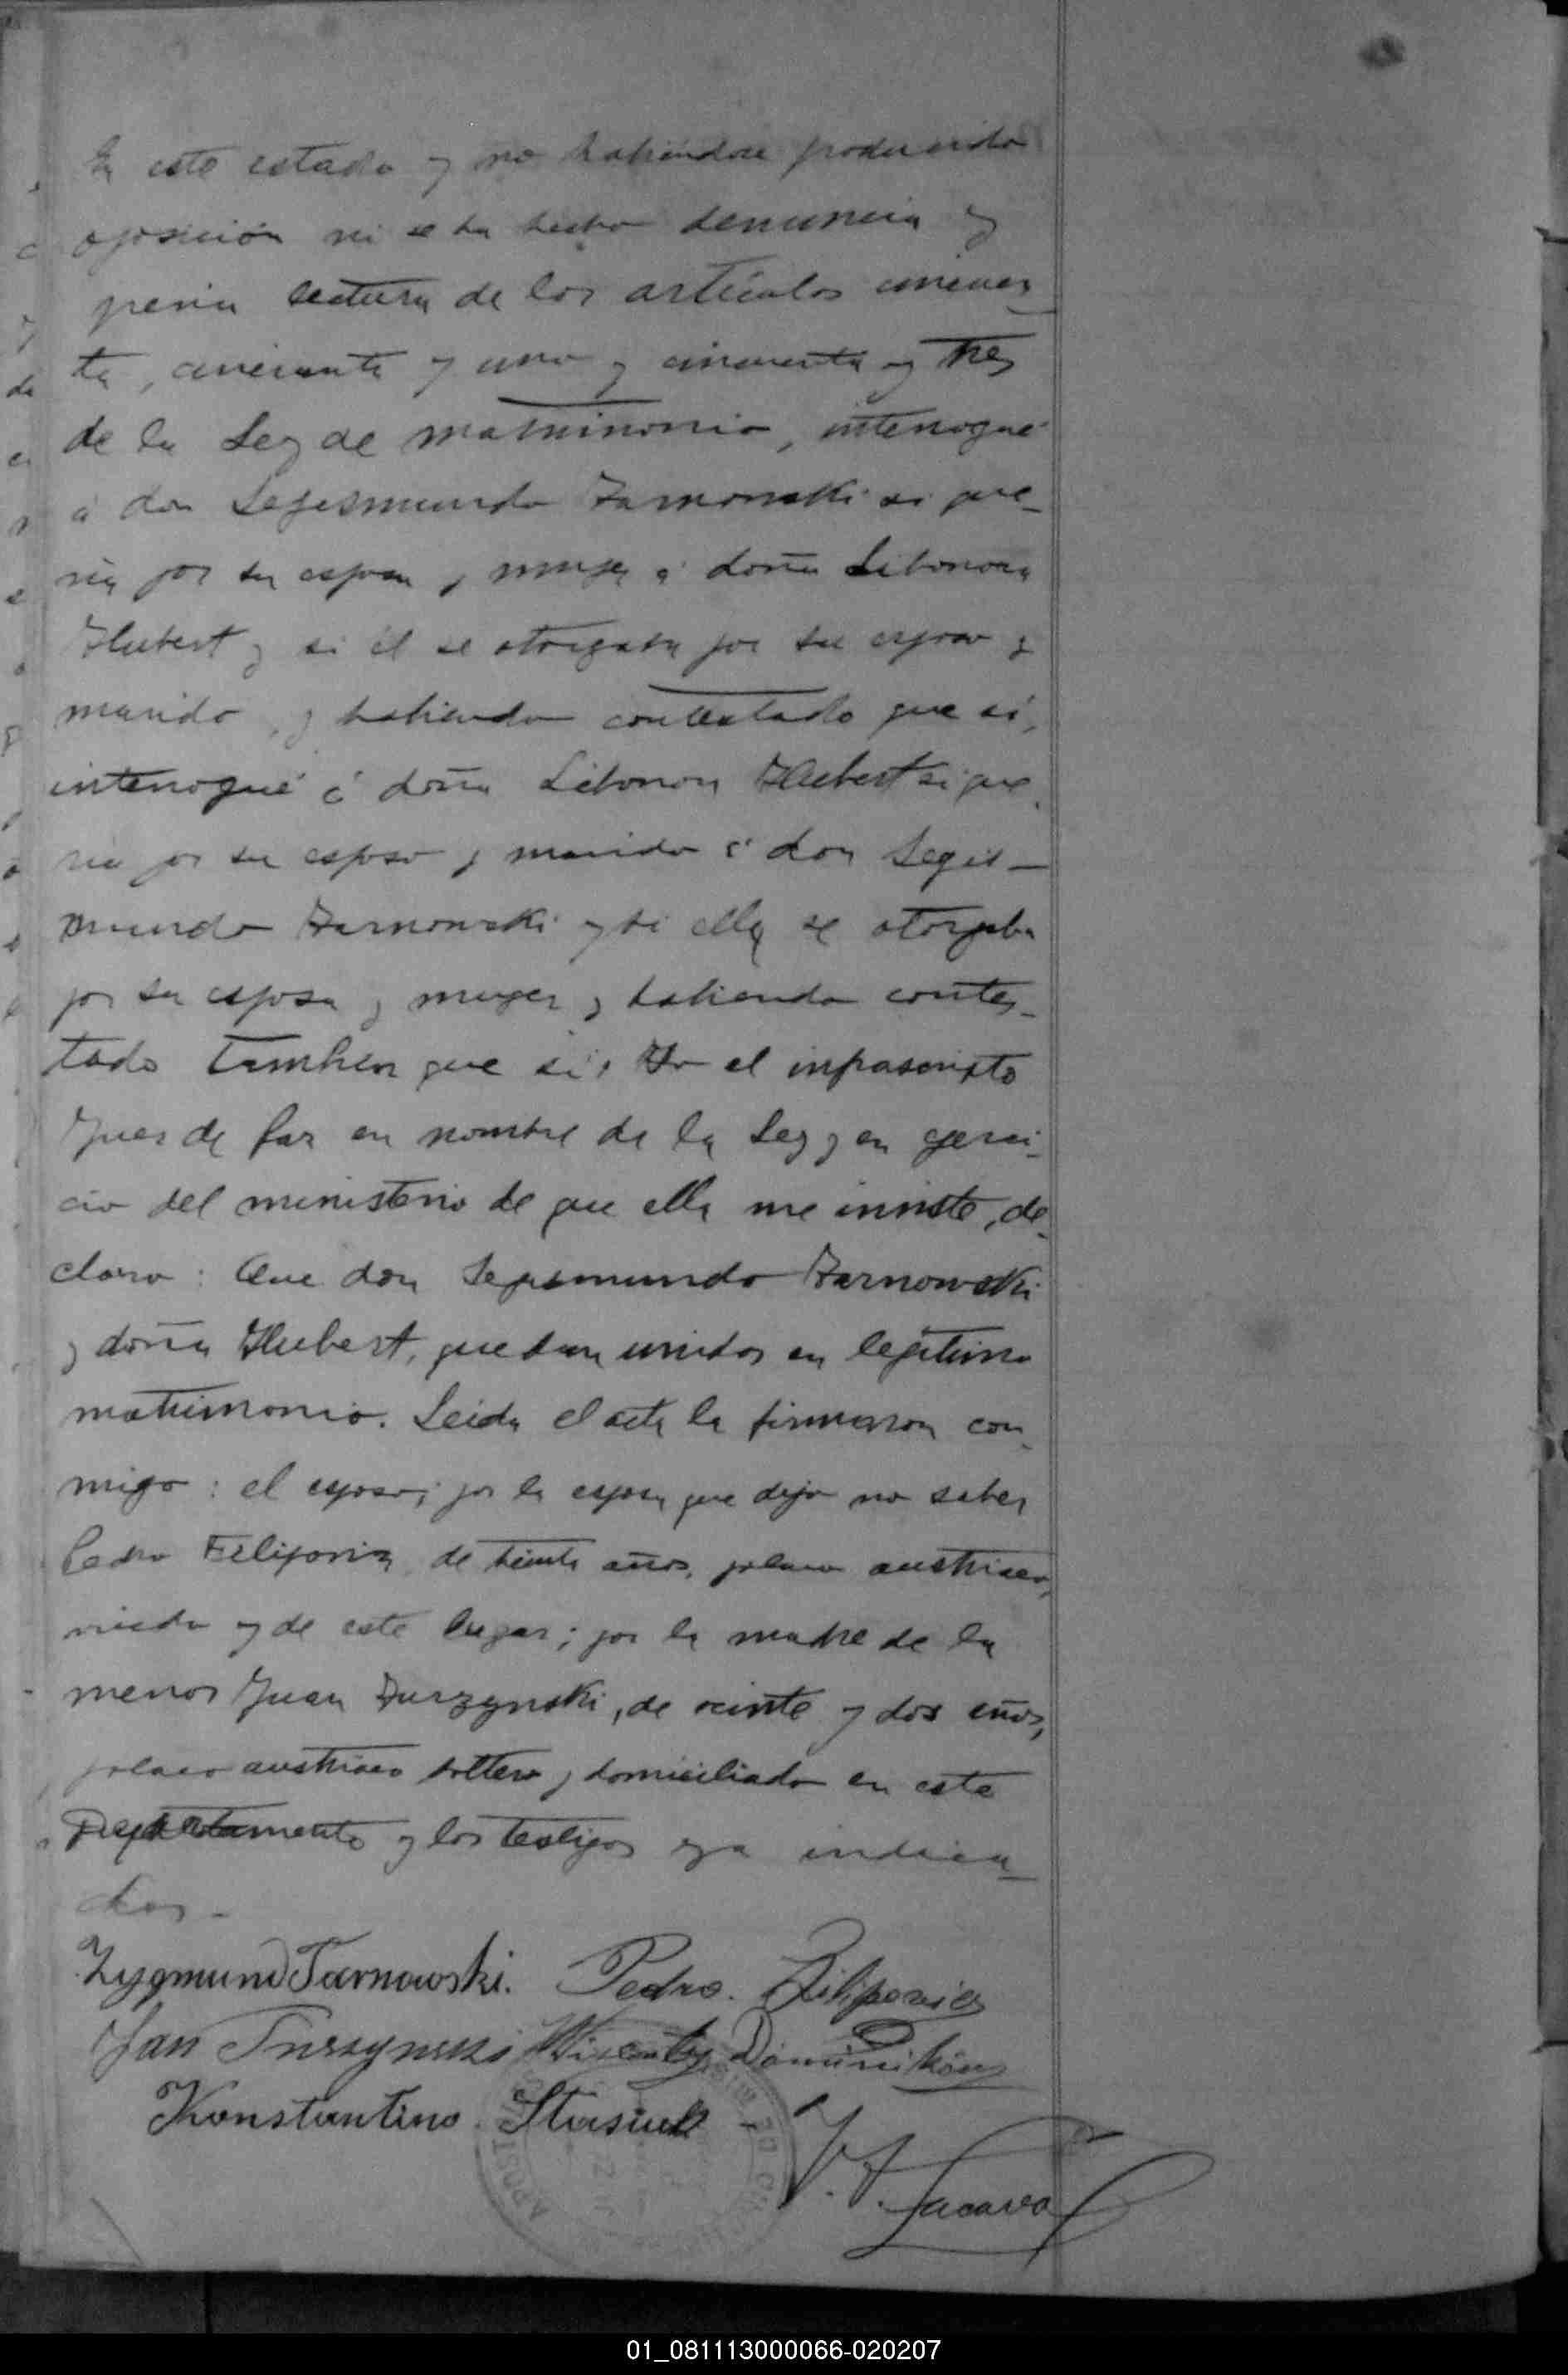 En este estado y no habiéndose producido
oposición ni se ha hecho denuncia y
previa lectura de los artículos cincuen
ta, cincuenta y uno y cincuenta y tres
de la Ley de matrimonio, interrogué
á don Segismundo Tarnowski si que-
ría por su esposa y muger á doña
Hubert y si él se otorgaba por su esposo y
marido, y habiendo contestado que sí,
interrogué á doña Hubert si que
ría por su esposo y marido á don Segis-
mundo Tarnowski y si ella se otorgaba
por su esposa y muger y habiendo contes-
tado tambien que sí; Yo el infrascripto
Juez de Paz en nombre de la Ley y en egerci-
cio del ministerio de que ella me inviste, de-
claro: Que don Segismundo Tarnowski
y doña Hubert, quedan unidos en legítimo
matrimonio. Leida el acta la firmaron con-
migo: el esposo; por la esposa que dijo no saber
Pedro de treinta años, polaco austriaco,
viudo y de este lugar; por la madre de la
menor Juan Turzynski, de veinte y dos años,
polaco austriaco soltero y domiciliado en este
Departamento y los testigos ya indica-
dos-
Zygmund Tarnowski. Pedro. Filipovicz
Jan Turzynski Wicenty
Konstantino Stasiuk -
J. A. Lacava
01_081113000066-020207